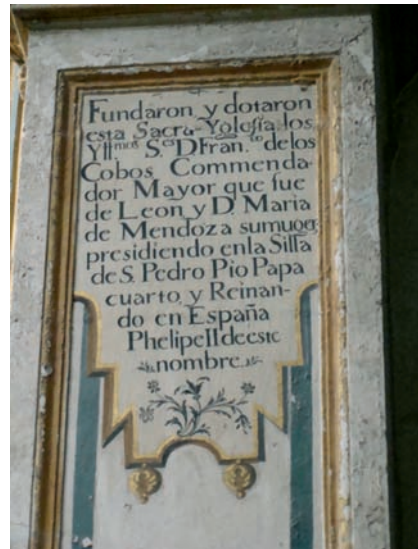 Fundaron, y dotaron
esta Sacra-Yglesia, los
Yllmos S.es D Fran.co de los
Cobos Commenda-
dor Mayor que fue
de Leon y D. Maria
de Mendoza su muger,
presidiendo en la Silla
de S. Pedro Pio Papa
cuarto, y Reinan-
do en España
Phelipe II de este
nombre.